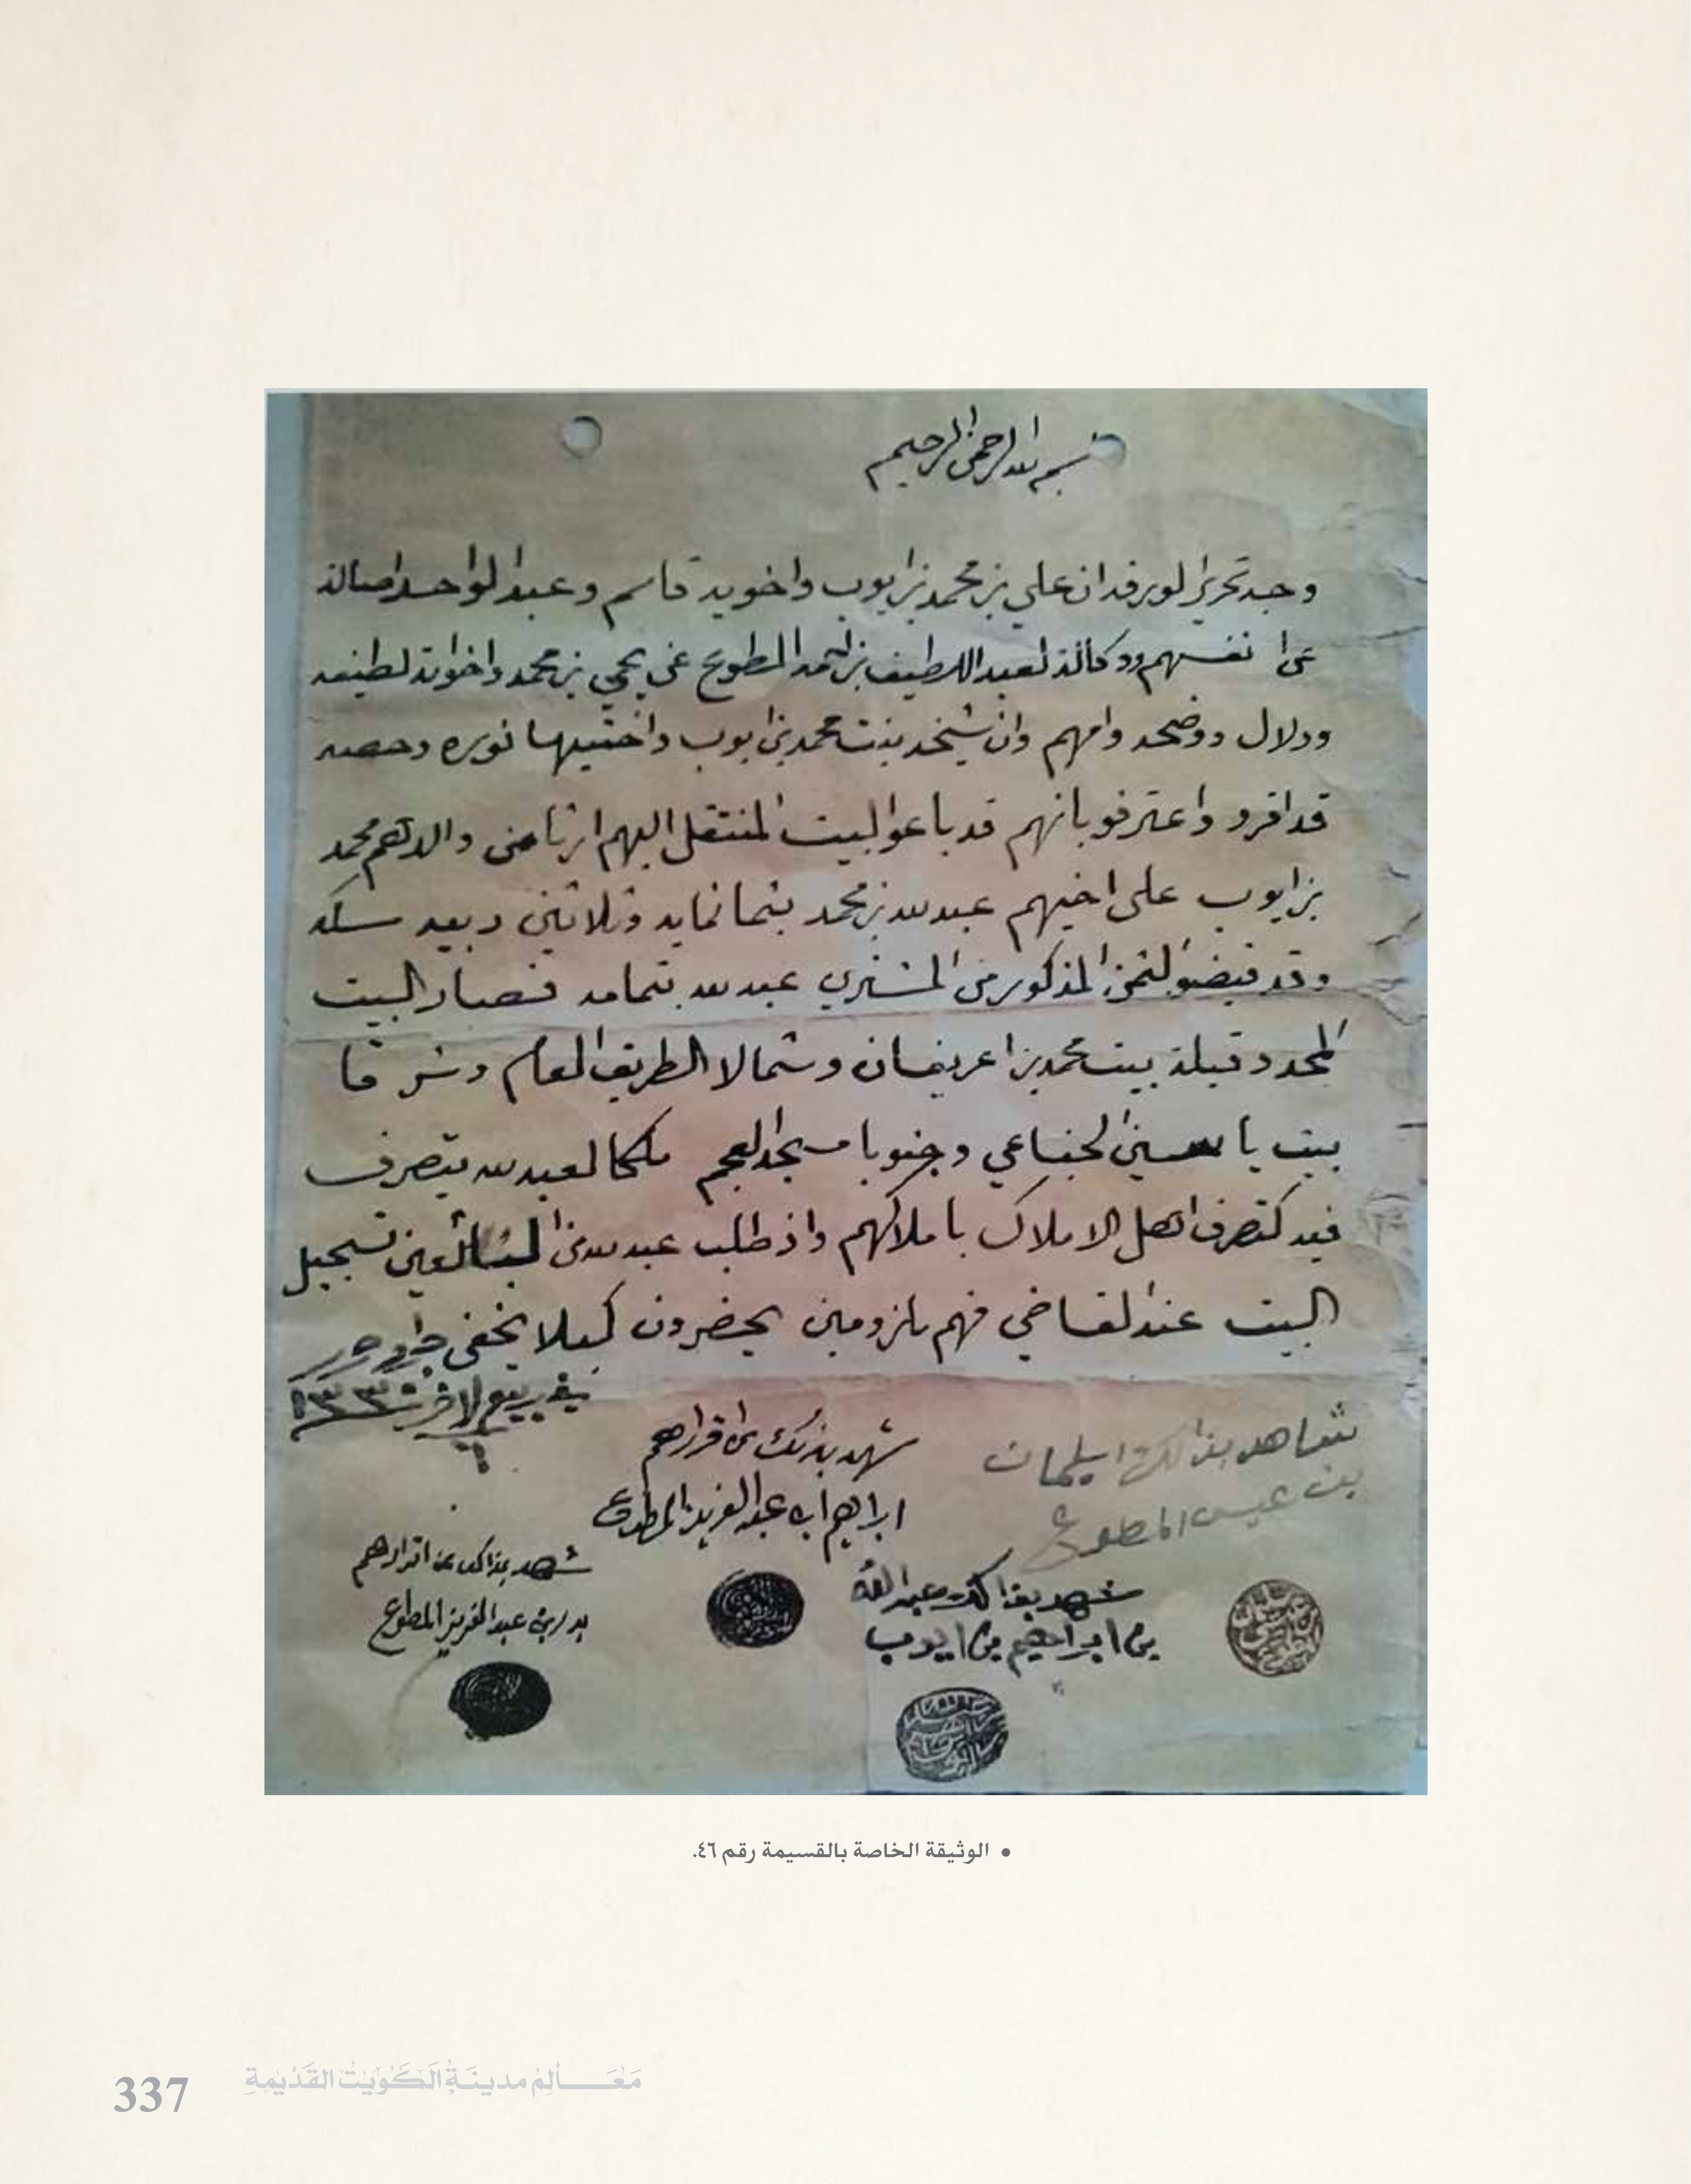 بسم الله الرحمن الرحيم
وجه تحرير لورقه ان علي بن محمد بن ايوب واخويه قاسم وعبدالواحد اصالة
عن انفسهم ووكالة لعبداللطيف بن المطوع عن يحي بن محمد واخواته لطيفه
ودلال ووضحه وامهم وان شيخه بنت محمد بن ايوب واختيها نوره وحصه
قد اقرو واعترفو بانهم قد باعو البيت المنتقل اليهم ارثا من والدهم محمد
بن ايوب على اخيهم عبدالله بن محمد بثمانمايه وثلاثين ربيه سكه
وقد قبضو لثمن المذكور من المشتري عبدالله بتمامه فصار البيت
المحدود قبلة بيت محمد بن اعريفان وشمالا الطريق العام وشرقا
بيت ياسين الجناعي وجنوبا مسجد العجم ملكا لعبدالله يتصرف
فيه كتصرف اهل الاملاك باملاكهم واذ طلب عبدالله من البائعين تسجيل
البيت عند لقاضي فهم ملزومين يحضرون كيلا يخفى
في ربيع الاخر ١٣٣٥
شاهد بذالك اسليمان
بن عيسى المطوع
شهد بذلك على اقرارهم
ابراهيم ابن عبدالعزيز المطوع
شهد بذالك عبدالله
بن ابراهيم بن ايوب
شهد بذالك عن اقرارهم
بدر بن عبدالعزيز المطوع
• الوثيقة الخاصة بالقسيمة رقم ٤٦.
337 مَعَـالِم مدينَةِ الكُوَيْتْ القَدْيمةِ